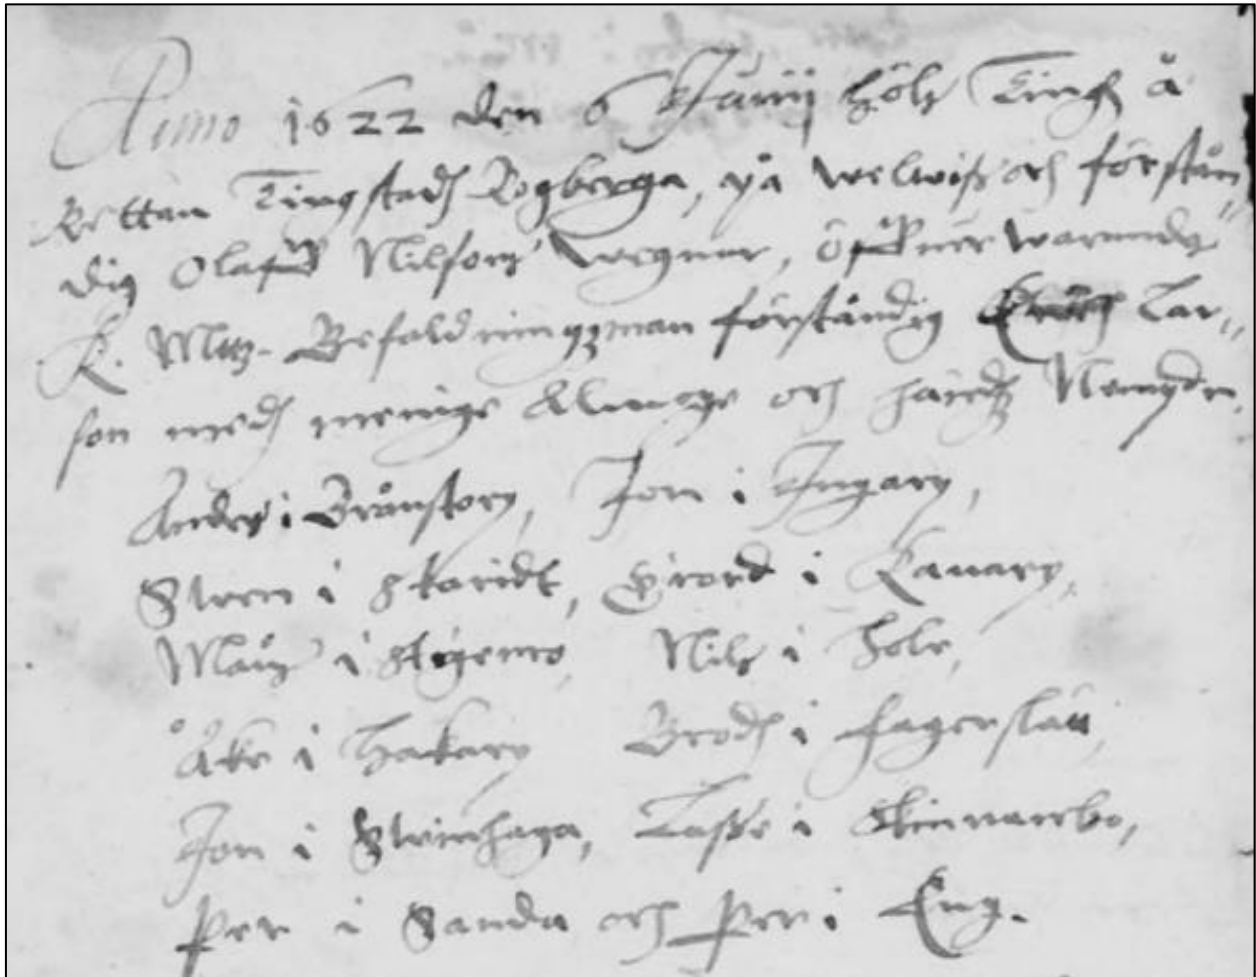 Anno 1622 den 6 Junij hölz Tingh å
Rettan Tingstadh Rogberga, på welwiß och förstån,,
dig Olaff Nilsons wegnar, öffuerwarande
K. Mttz. Befaldningzman förståndig Erich Lar,,
son medh menige Almoge och häredz Nempden,
Anders i Brånstorp, Jon i Ingary,
Swen i skaridt, Giord i Kauary,
Månz i stigemo, Nilz i Hole,
Åke i Hakary Brodh i fagerslätt,
Jon i Stenshaga, Lasse i skinnarebo,
Per i Sanda och Per i Eng.